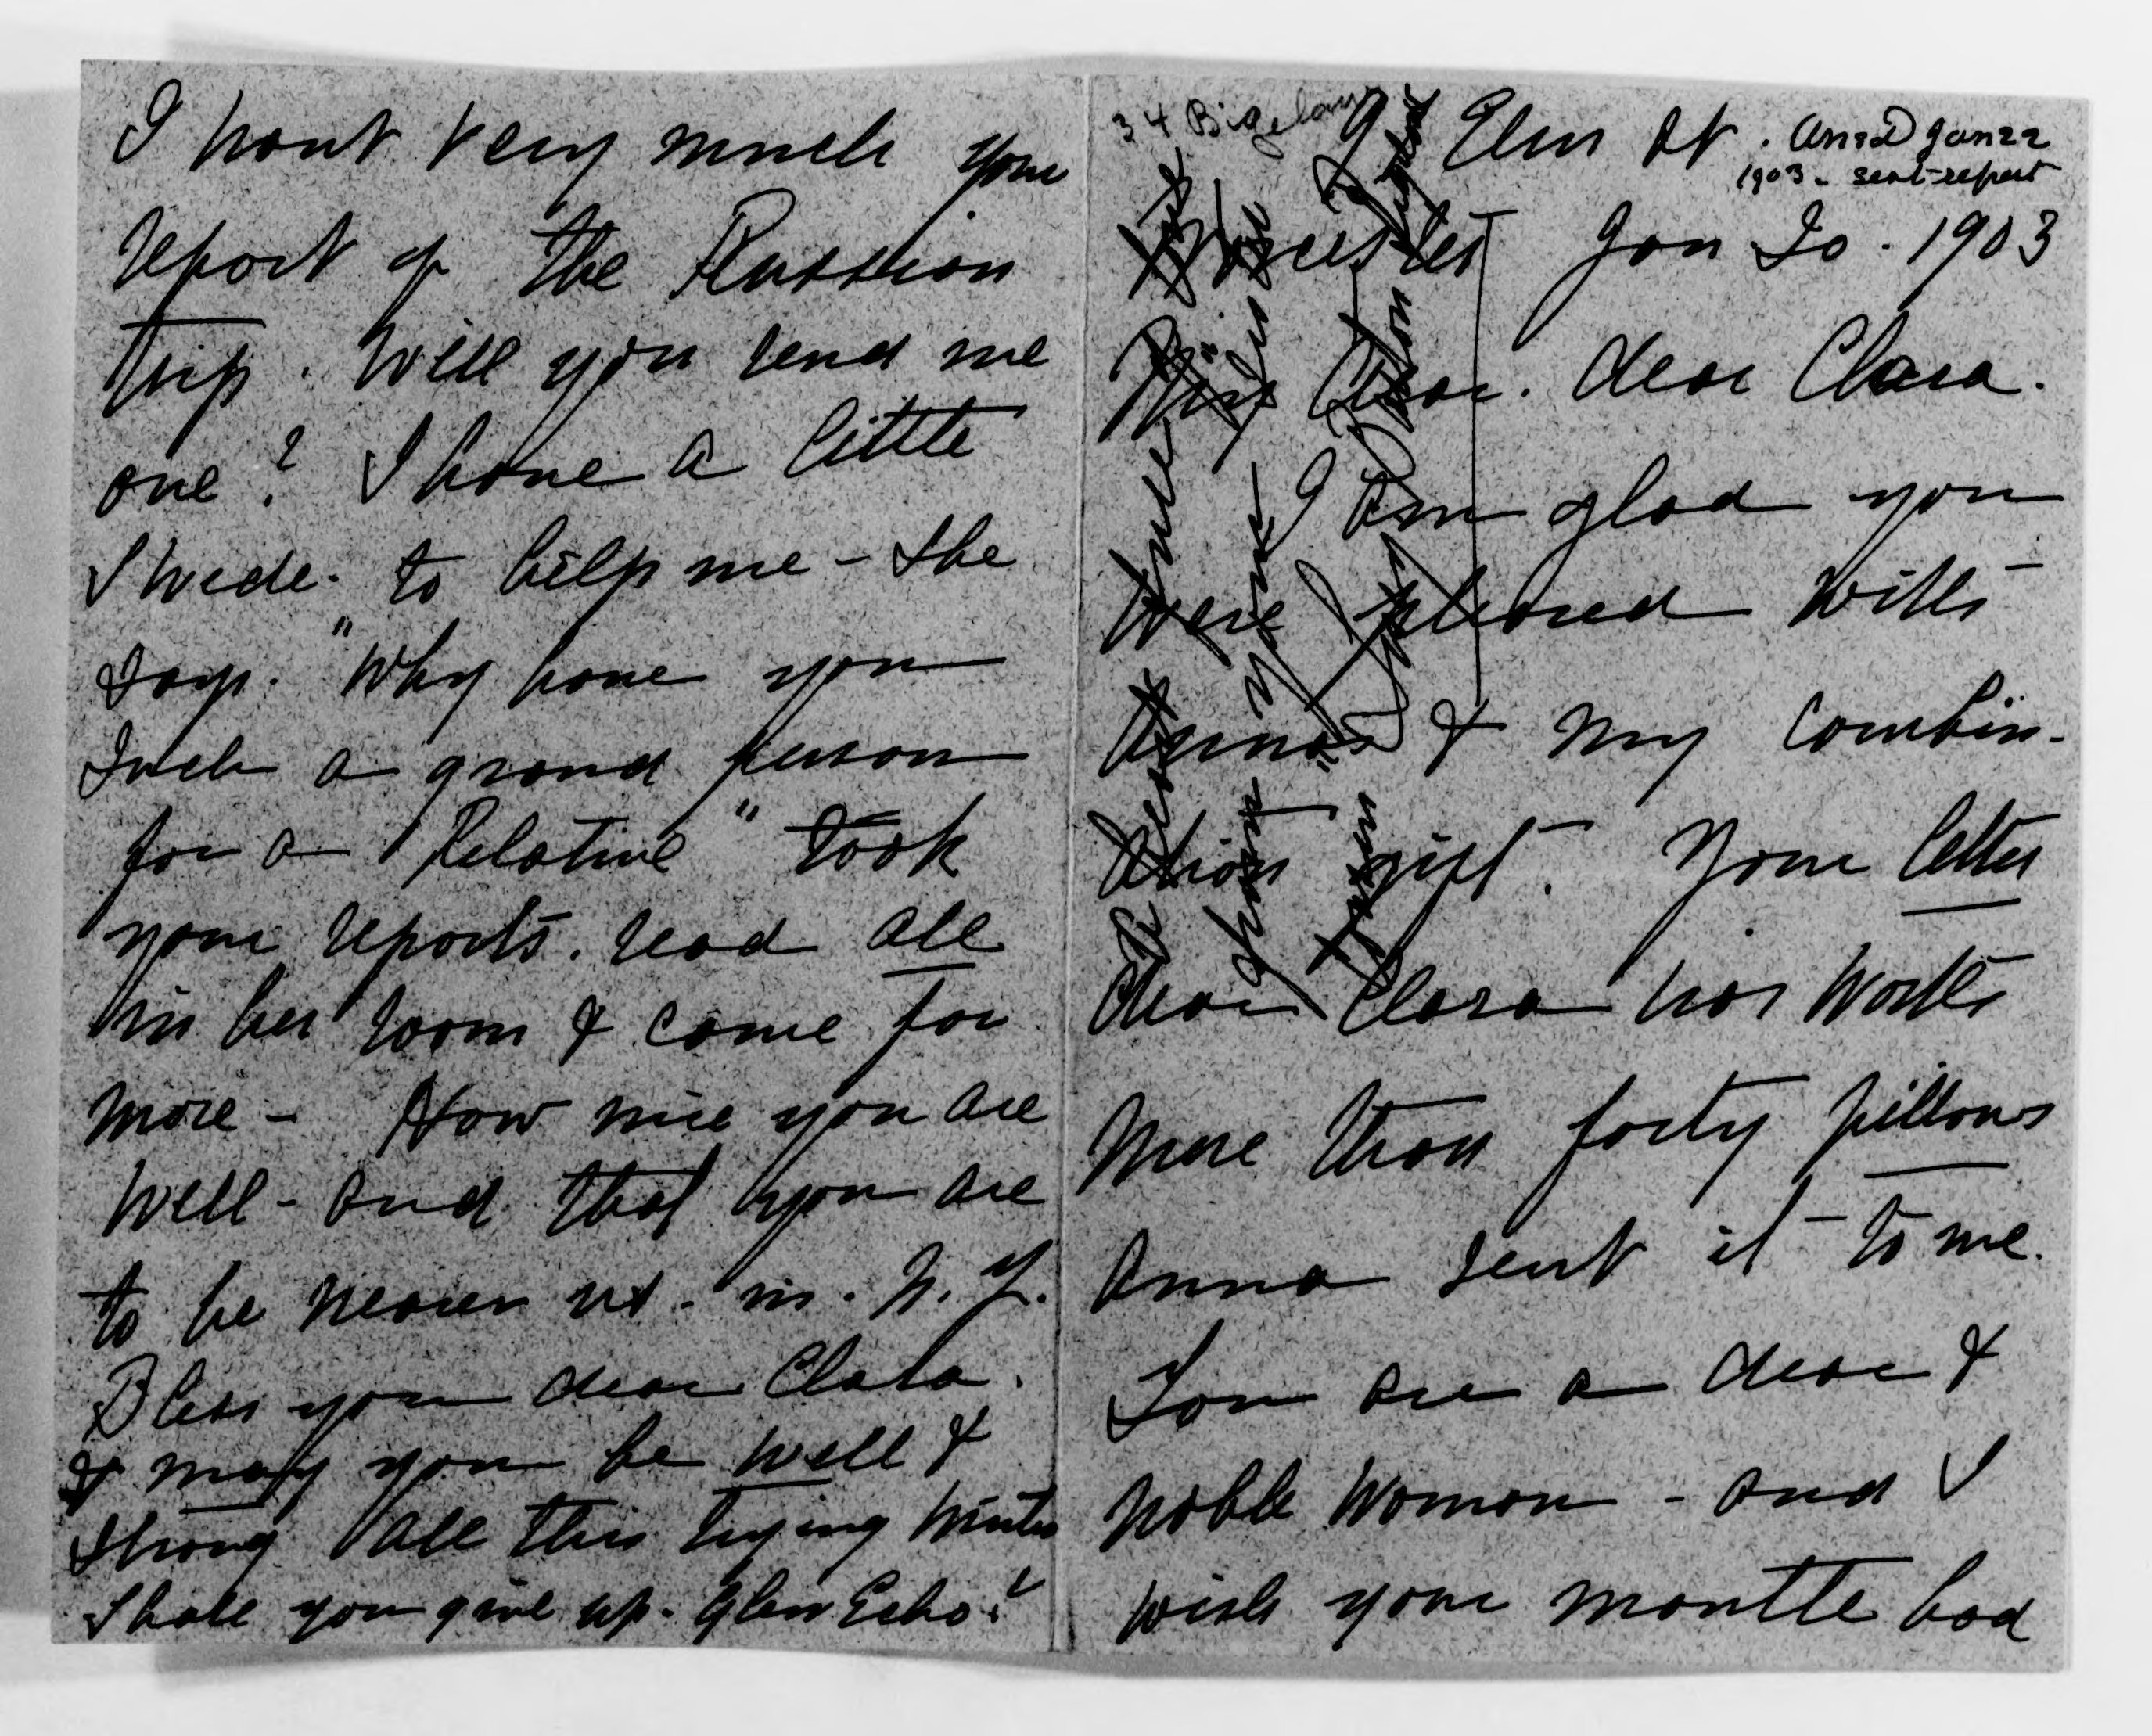 34 Bigelow
9 Elm St. Ansd Jan 22
1903 - sent report
Worcester Jan 20. 1903
Dear Clara.
I am glad you
were pleased with
Anna's & my combin-
ation gift. Your letter
dear Clara was worth
more than forty pillows
Anna sent it to me.
You are a dear &
noble woman - and I
wish your mantle had
I want very much your
report of the Russian
trip. Will you send me
one? I have a little
Swede. to help me - she
says. "Why have you
such a grand person
for a relative" took
your reports. read all
in her room & came for
more - How nice you are
well - and that you are
to be nearer us - in. N. Y.
Bless you dear Clara.
& may you be well &
strong all this trying winter
Shall you give up. Glen Echo?